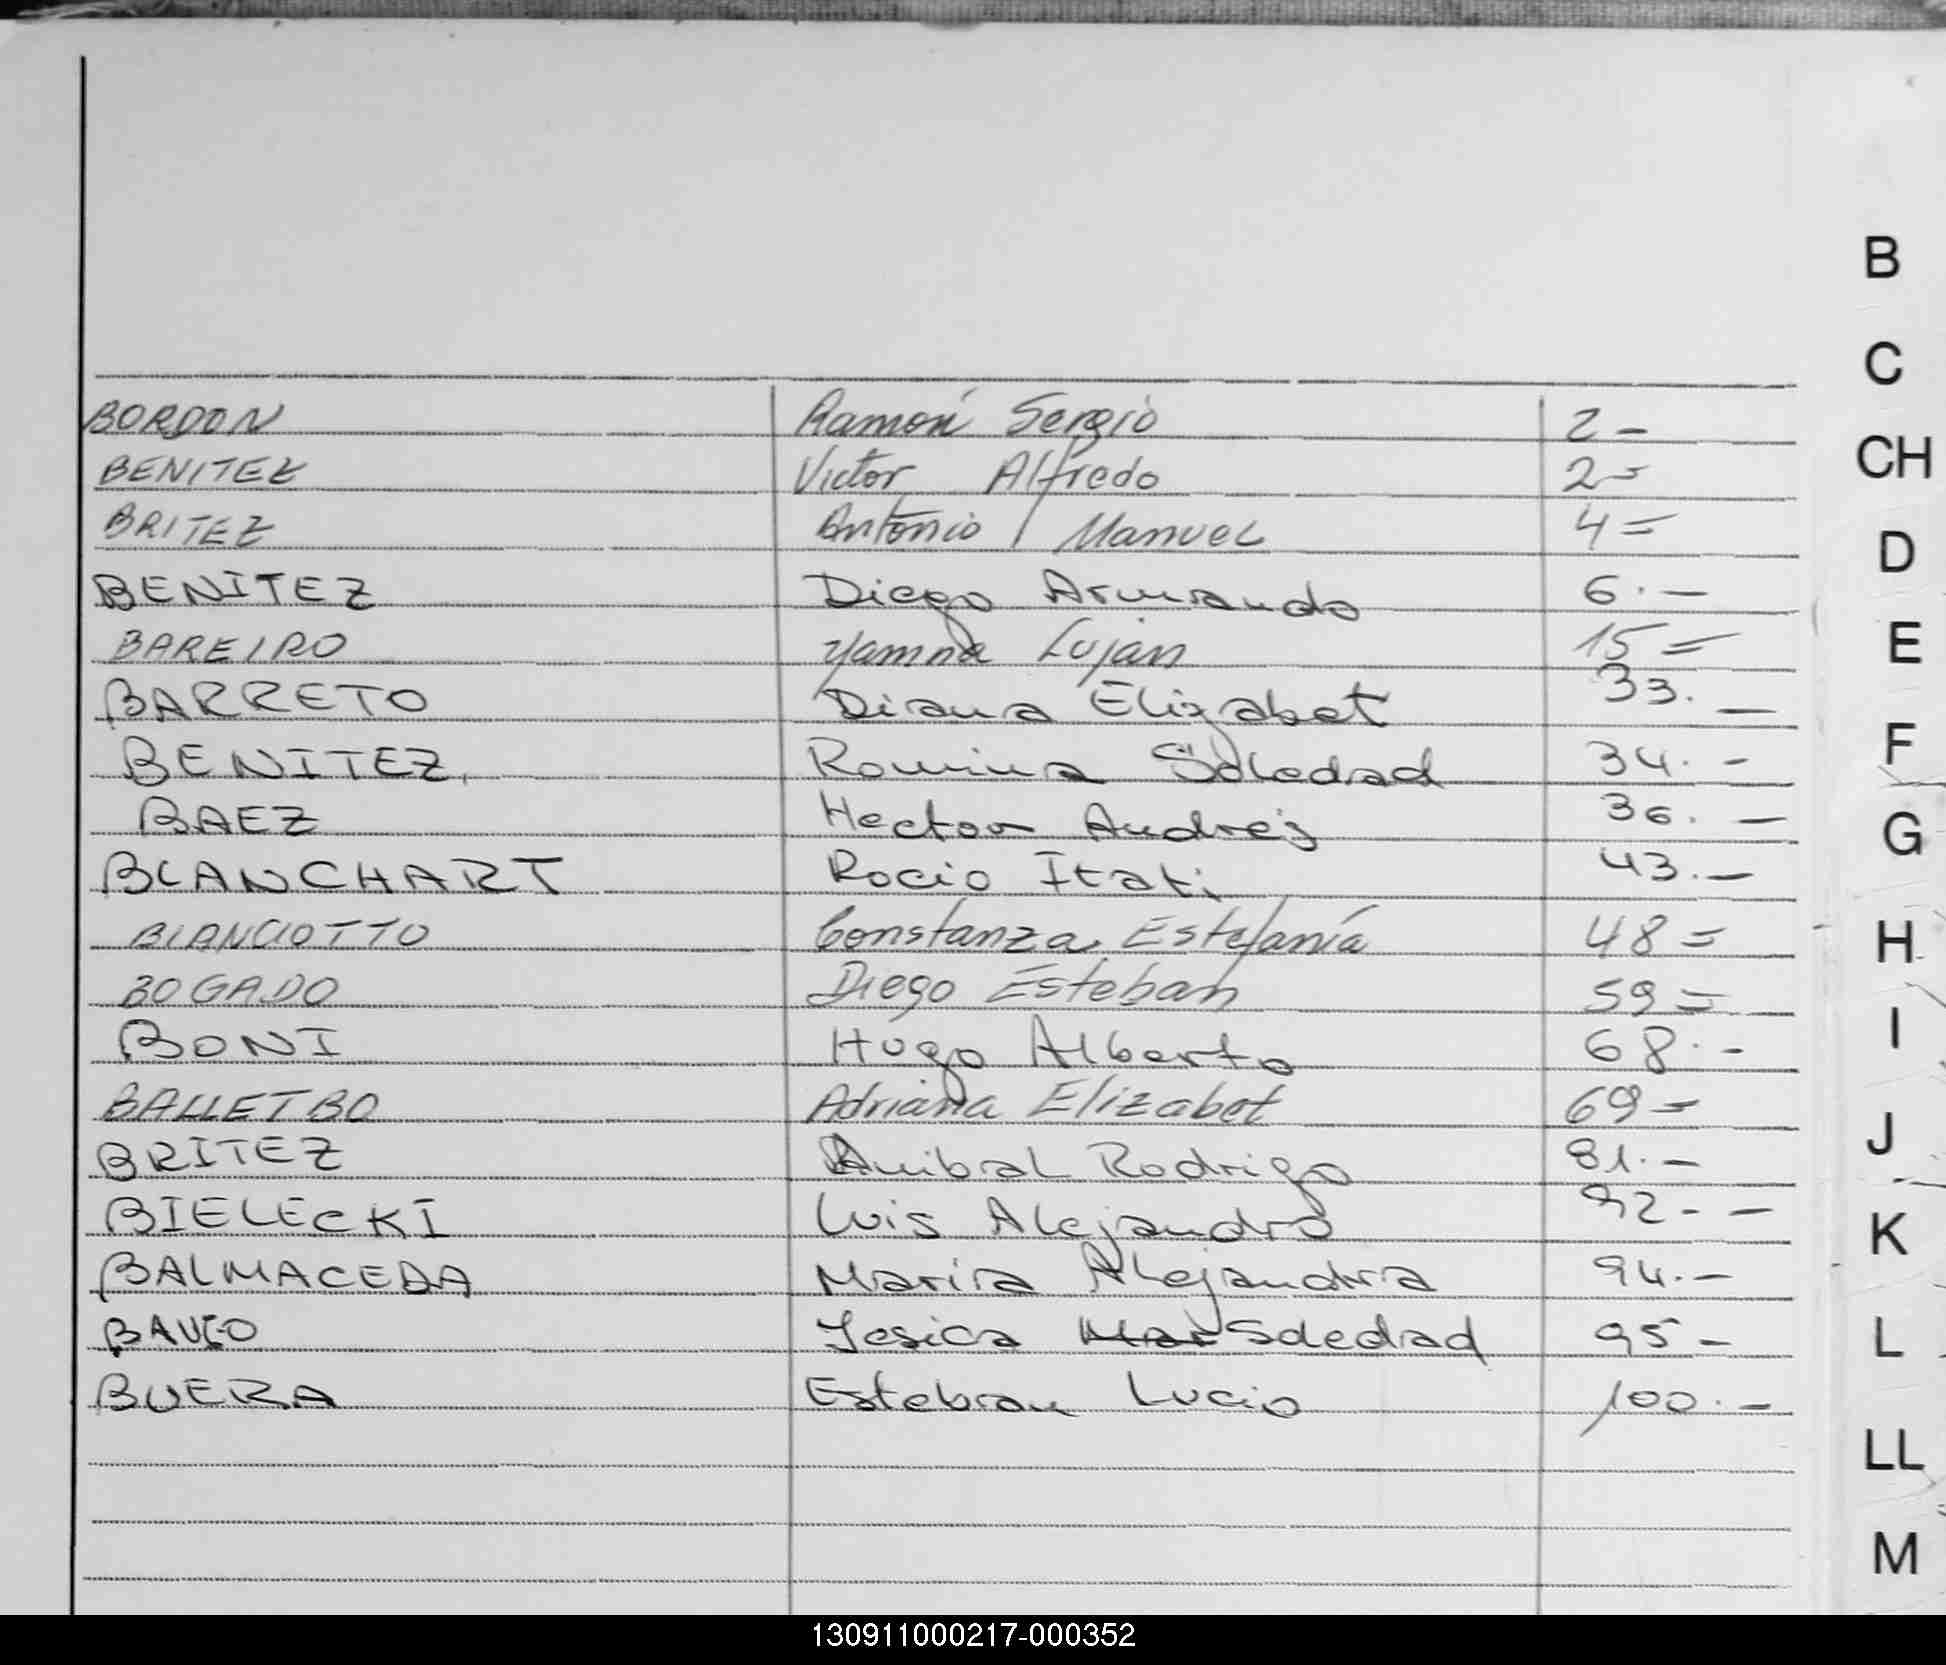 BORDON Ramón Sergio 2-
BENITEZ Victor Alfredo 2=
BRITEZ Antonio Manuel 4=
BENITEZ Diego Armando 6.-
BAREIRO Yamna Luján 15=
BARRETO Diana Elizabet 33.-
BENITEZ, Romina Soledad 34.-
BAEZ Hector Andrés 36.-
BLANCHART Rocio Itati 43.-
BIANCIOTTO Constanza Estefanía 48=
BOGADO Diego Esteban 59=
BONI Hugo Alberto 68.-
BALLETBO Adriana Elizabet 69=
BRITEZ Anibal Rodrigo 81.-
BIELECKI Luis Alejandro 92.-
BALMACEDA Maria Alejandra 94.-
Yesica Soledad 95-
BUERA Esteban Lucio 100.-
B
C
CH
D
E
F
G
H
I
J
K
L
LL
M
130911000217-000352